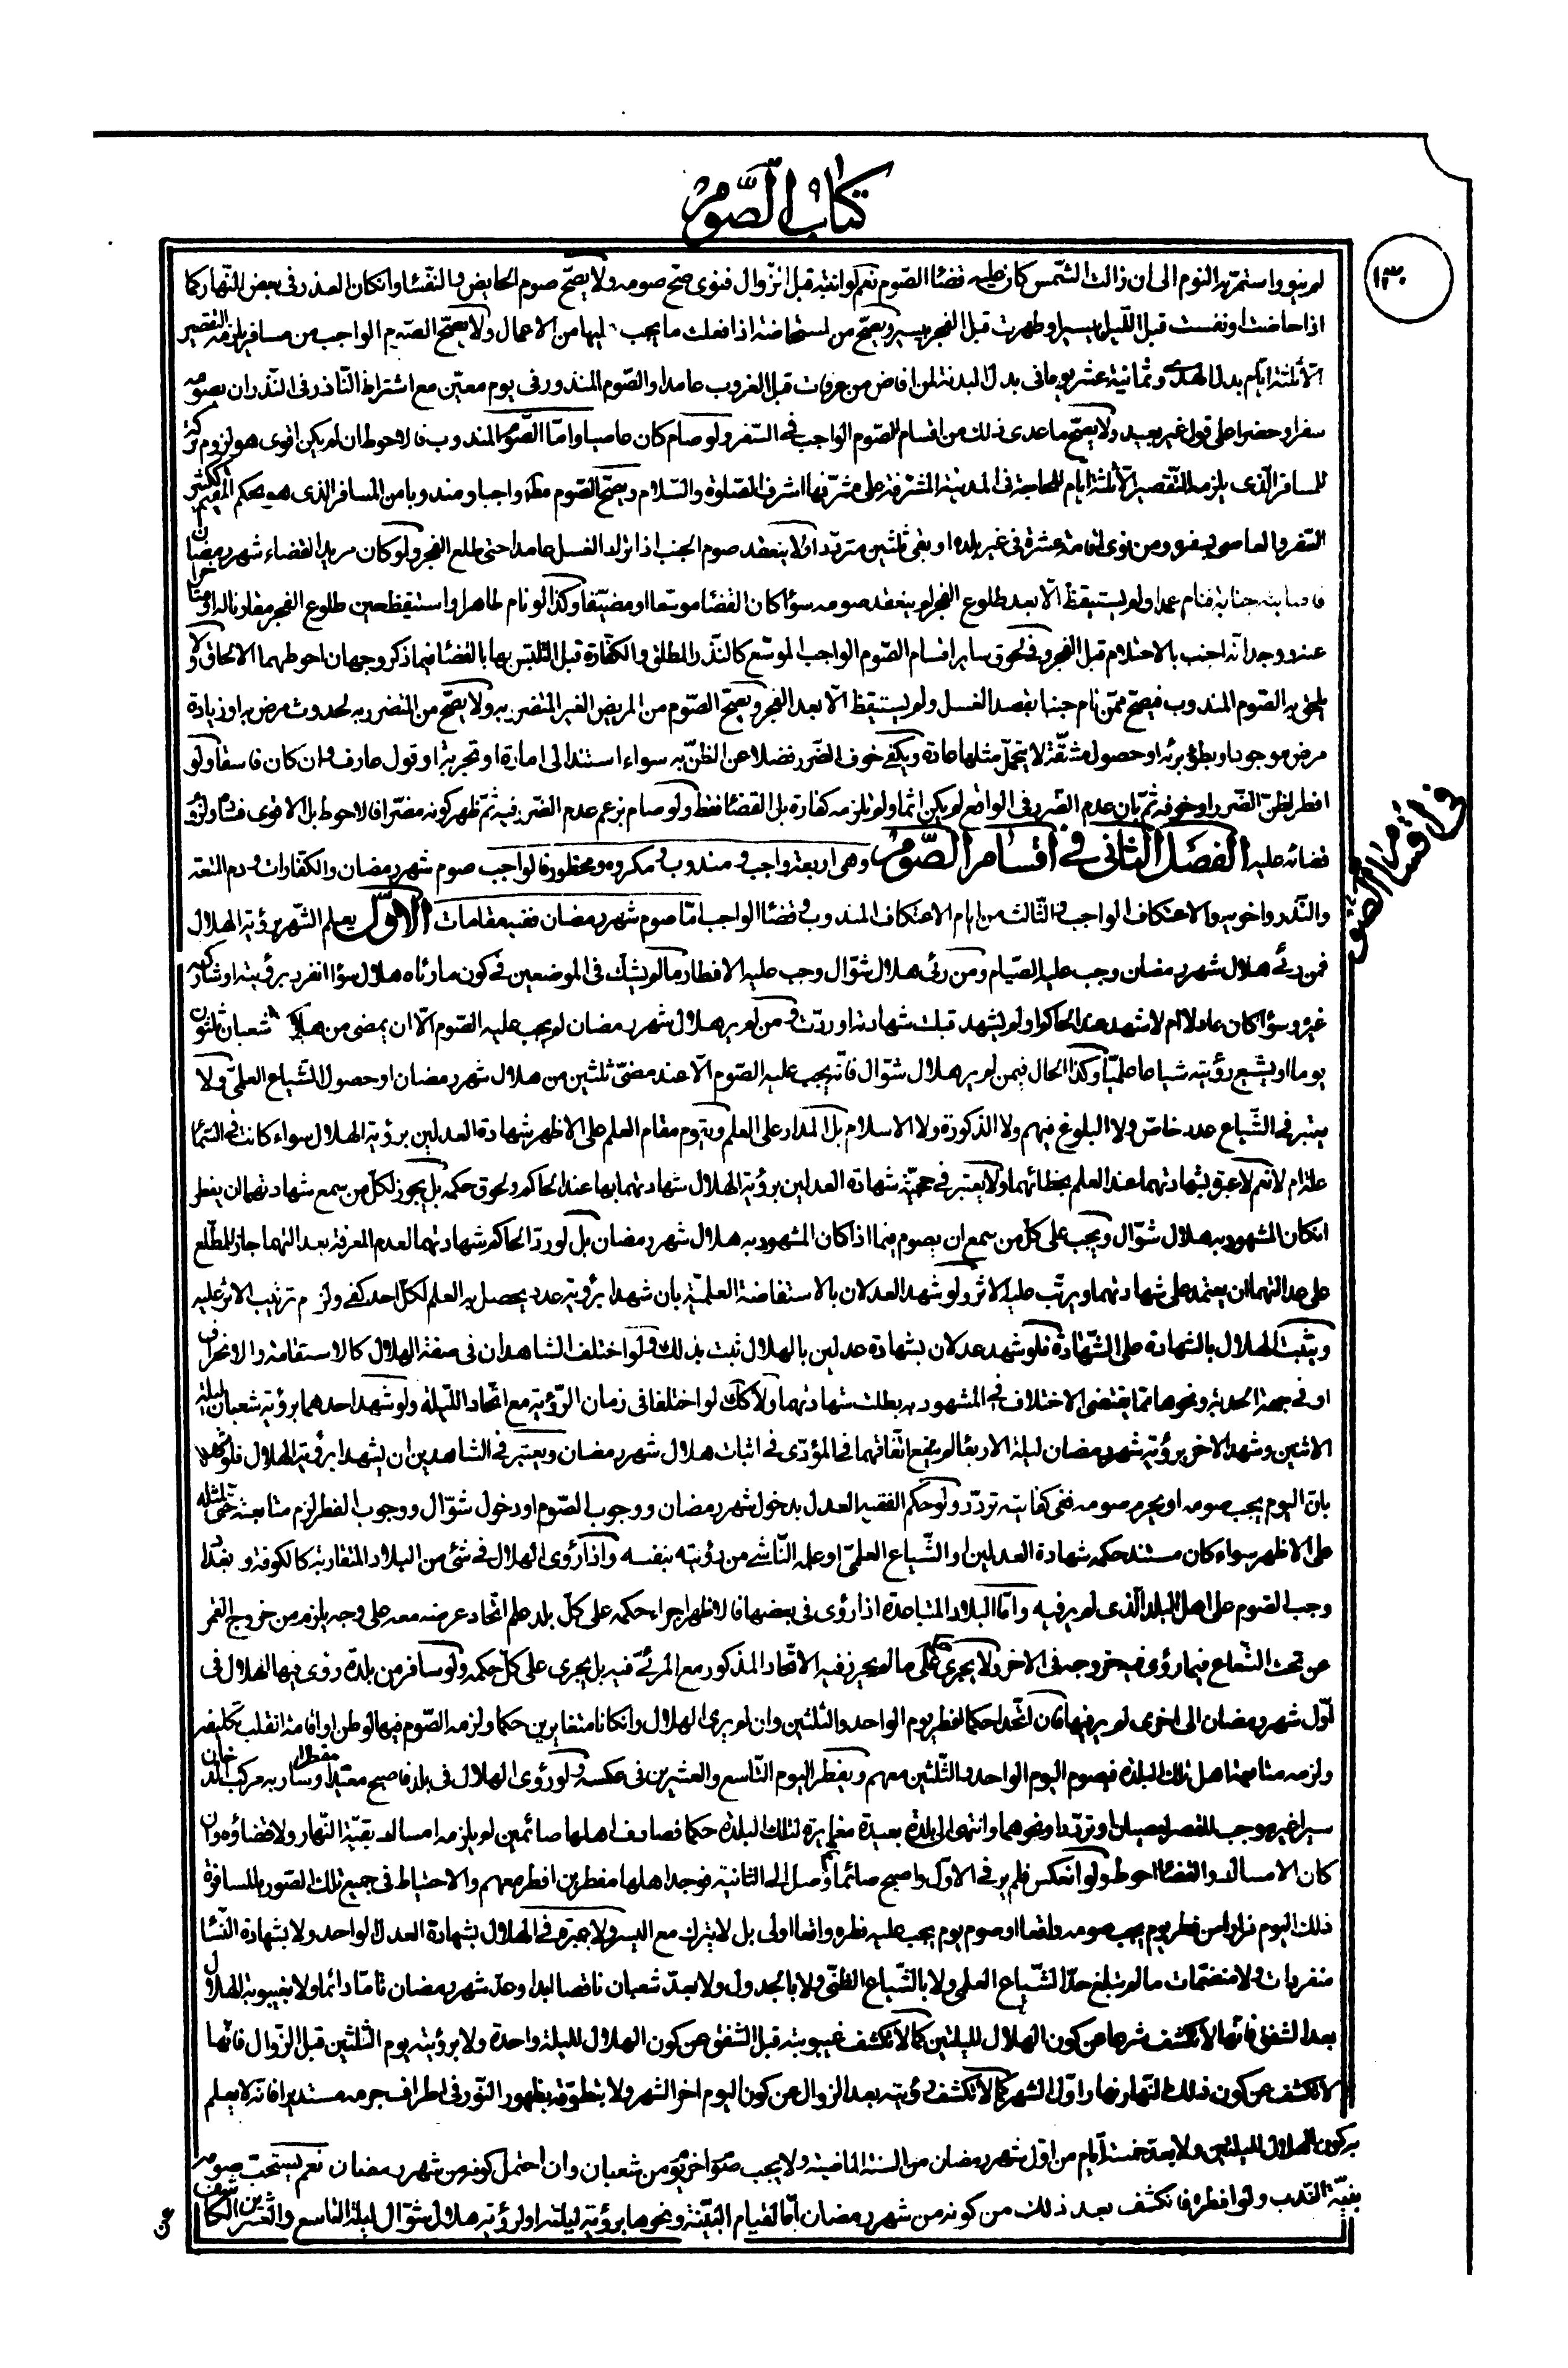 كتاب الصّوم
١٣٠
لم ينو واستمرّ به النوم الى ان زالت الشّمس كان عليه قضاء الصّوم نعم لو انتبه قبل الزّوال فنوى صحّ صومه ولا يصحّ صوم الحايض والنّفساء وان كان العذر فى بعض النّهار كما
اذا حاضت او نفست قبل اللّيل بيسير او طهرت قبل الفجر بيسير ويصحّ من المستحاضة اذا فعلت ما يجب عليها من الاعمال ولا يصحّ الصّوم الواجب من مسافر يلزمه التقصير
الّا ثلثة ايّام بدل الهدى وثمانية عشر يوما فى بدل البدنة لمن افاض من عرفات قبل الغروب عامدا والصّوم المنذور فى يوم معيّن مع اشتراط النّاذر فى النّذر ان يصومه
سفرا وحضرا على قول غير بعيد ولا يصحّ ما عدى ذلك من اقسام الصّوم الواجب فى السّفر ولو صام كان عاصيا وامّا الصّوم المندوب فالاحوط ان لم يكن اقوى هو لزوم تركه
للمسافر الّذى يلزمه التّقصير الّا ثلثة ايام للحاجة فى المدينة المشرّفة على مشرّفها اشرف الصّلوة والسّلام ويصحّ الصّوم مطلقا واجبا ومندوبا من المسافر الذى هو بحكم المقيم ككثير
السّفر والعاصى بسفره ومن نوى اقامة عشرة فى غير بلده او بقى ثلثين متردّدا ولا ينعقد صوم الجنب اذا ترك الغسل عامدا حتى طلع الفجر ولو كان مريدا لقضاء شهر رمضان
فاصابته جنابة فنام عمدا ولم يستيقظ الّا بعد طلوع الفجر لم ينعقد صومه سواء كان القضاء موسّعا او مضيّقا وكذا لو نام طاهرا واستيقظ حين طلوع الفجر مقارنا له او متاخرا
عنه ووجد انّه اجنب بالاحتلام قبل الفجر وفى لحوق ساير اقسام الصّوم الواجب الموسّع كالنّذر المطلق والكفّارة قبل التلبّس بها بالقضاء فيما ذكر وجهان احوطهما الالحاق ولا
يلحق به الصّوم المندوب فيصحّ ممّن نام جنبا بقصد الغسل ولم يستيقظ الّا بعد الفجر ويصحّ الصّوم من المريض الغير المتضرر به ولا يصحّ من المتضرر به لحدوث مرض به او زيادة
مرض موجود او بطؤ برئه او حصول مشقّة لا يتحمّل مثلها عادة ويكفى خوف الضّرر فضلا عن الظنّ به سواء استند الى امارة او تجربة او قول عارف وان كان فاسقا ولو
افطر لظنّ الضّرر او خوفه ثمّ بان عدم الضّرر فى الواقع لم يكن اثما ولم تلزمه كفارة بل القضاء فقط ولو صام بزعم عدم الضّرر فيه ثمّ ظهر كونه مضرّا فالاحوط بل الاقوى فساده ولزوم
قضائه عليه الفصل الثانى فى اقسام الصّوم وهى اربعة واجب و مندوب و مكروه ومحظور فالواجب صوم شهر رمضان والكفّارات و دم المتعة
والنّذر واخويه والاعتكاف الواجب و الثّالث من ايام الاعتكاف المندوب و قضاء الواجب امّا صوم شهر رمضان ففيه مقامات الاوّل يعلم الشّهر برؤية الهلال
فمن رئى هلال شهر رمضان وجب عليه الصّيام ومن رئى هلال شوّال وجب عليه الافطار ما لم يشكّ فى الموضعين فى كون ما رئاه هلال سواء انفرد برؤيته او شاركه
غيره وسواء كان عادلا ام لا شهد عند الحاكم او لم يشهد قبلت شهادته او ردّت و من لم ير هلال شهر رمضان لم يجب عليه الصّوم الّا ان يمضى من هلال شعبان ثلثون
يوما او يشيع رؤيته شياعا علميّا وكذا الحال فيمن لم ير هلال شوّال فانّه يجب عليه الصّوم الّا عند مضىّ ثلثين من هلال شهر رمضان او حصول الشّياع العلمىّ ولا
يعتبر فى الشّياع عدد خاصّ ولا البلوغ فيهم ولا الذكورة ولا الاسلام بل المدار على العلم ويقوم مقام العلم على الاظهر شهادة العدلين برؤية الهلال سواء كانت فى السّماء
علّة ام لا نعم لا عبرة بشهادتهما عند العلم بخطائهما ولا يعتبر فى حجيّة شهادة العدلين برؤية الهلال شهادتهما بها عند الحاكم ولحوق حكمه بل يجوز لكلّ من سمع شهادتهما ان يفطر
ان كان المشهود به هلال شوّال ويجب على كلّ من سمع ان يصوم فيما اذا كان المشهود به هلال شهر رمضان بل لو ردّ الحاكم شهادتهما لعدم المعرفة بعدالتهما جاز للمطّلع
على عدالتهما ان يعتمد على شهادتهما ويرتّب عليه الاثر ولو شهد العدلان بالاستفاضة العلميّة بان شهدا برؤية عدد يحصل به العلم لكلّ احد كفى ولزم ترتيب الاثر عليه
ويثبت الهلال بالشهادة على الشّهادة فلو شهد عدلان بشهادة عدلين بالهلال ثبت بذلك ولو اختلف الشاهدان فى صفة الهلال كالاستقامة والانحراف
او فى جهة الحدبة ونحوها ممّا يقتضى الاختلاف فى المشهود به بطلت شهادتهما ولا كك لو اختلفا فى زمان الرّؤية مع اتّحاد اللّيلة ولو شهد احدهما برؤية شعبان ليلة
الاثنين وشهد الاخر برؤية شهر رمضان ليلة الاربعاء لم ينفع اتّفاقهما فى المؤدّى فى اثبات هلال شهر رمضان ويعتبر فى الشاهدين ان يشهدا برؤية الهلال فلو شهدا
بانّ اليوم يجب صومه او يحرم صومه ففى كفايته تردّد ولو حكم الفقيه العدل بدخول شهر رمضان ووجوب الصّوم او دخول شوّال ووجوب الفطر لزم متابعته حتّى لمثله
على الاظهر سواء كان مستند حكمه شهادة العدلين او الشّياع العلمىّ او علمه النّاشى من رؤيته بنفسه واذا رؤى الهلال فى شئ من البلاد المتقاربة كالكوفة وبغداد
وجب الصّوم على اهل البلد الّذى لم ير فيه وامّا البلاد المتباعدة اذا رؤى فى بعضها فالاظهر اجراء حكمه على كلّ بلد علم اتّحاد عرضه معه على وجه يلزم من خروج القمر
عن تحت الشّعاع فيما رؤى فيه خروجه فى الاخر ولا يجرى حكمه على ما لم يحرز فيه الاتّحاد المذكور مع المرئىّ فيه بل يجرى على كلّ حكمه ولو سافر من بلدة رؤى فيها الهلال فى
اوّل شهر رمضان الى اخرى لم ير فيها فان اتّحدا حكما افطر يوم الواحد والثلثين وان لم يرى الهلال وان كانا متغايرين حكما ولزمه الصّوم فيها لوطن او اقامة انقلب تكليفه
ولزمه متابعة اهل تلك البلدة فيصوم اليوم الواحد والثّلثين معهم ويفطر اليوم التّاسع والعشرين فى عكسه ولو رؤى الهلال فى بلد فاصبح معيّدا مفطرا وسار به مركب الدخان
سيرا غير موجب للقصر لعصيان او تردّد او نحوهما وانتهى الى بلدة بعيدة مغايرة لتلك البلدة حكما فصادف اهلها صائمين لم يلزمه امساك بقيّة النّهار ولا قضاؤه وان
كان الامساك والقضاء احوط ولو انعكس فلم ير فى الاوّل واصبح صائما ثمّ وصل الى الثانية فوجد اهلها مفطرين افطر معهم والاحتياط فى جميع تلك الصّور بالمسافرة
ذلك اليوم فرارا من فطر يوم يجب صومه واقعا او صوم يوم يجب عليه فطره واقعا اولى بل لا يترك مع اليسر ولا عبرة فى الهلال بشهادة العدل الواحد ولا بشهادة النّساء
منفردات ولا منضمّات ما لم تبلغ حدّ الشّياع العلمى ولا بالشّياع الظنّى ولا بالجدول ولا بعدّ شعبان ناقصا ابدا وعدّ شهر رمضان تامّا دائما ولا بغيبوبة الهلال
بعد الشفق فانّها لا تكشف شرعا عن كون الهلال لليلتين كما لا تكشف غيبوبته قبل الشفق عن كون الهلال لليلة واحدة ولا برؤيته يوم الثلثين قبل الزّوال فانّها
لا تكشف عن كون ذلك النّهار نهار اوّل الشهر كما لا تكشف رؤيته بعد الزوال عن كون اليوم اخر الشهر ولا بتطوّقه بظهور النّور فى اطراف جرمه مستديرا فانّه لا يعلم
به كون الهلال لليلتين ولا بعدّ خمسة ايّام من اوّل شهر رمضان من السنة الماضية ولا يجب صوم اخر يوم من شعبان وان احتمل كونه من شهر رمضان نعم يستحبّ صومه
بنيّة النّدب ولو افطره فانكشف بعد ذلك من كونه من شهر رمضان امّا لقيام البيّنة ونحوها برؤية ليلته او لرؤية هلال شوّال ليلة التاسع والعشرين الكاشف
عن
فى اقسام الصّوم